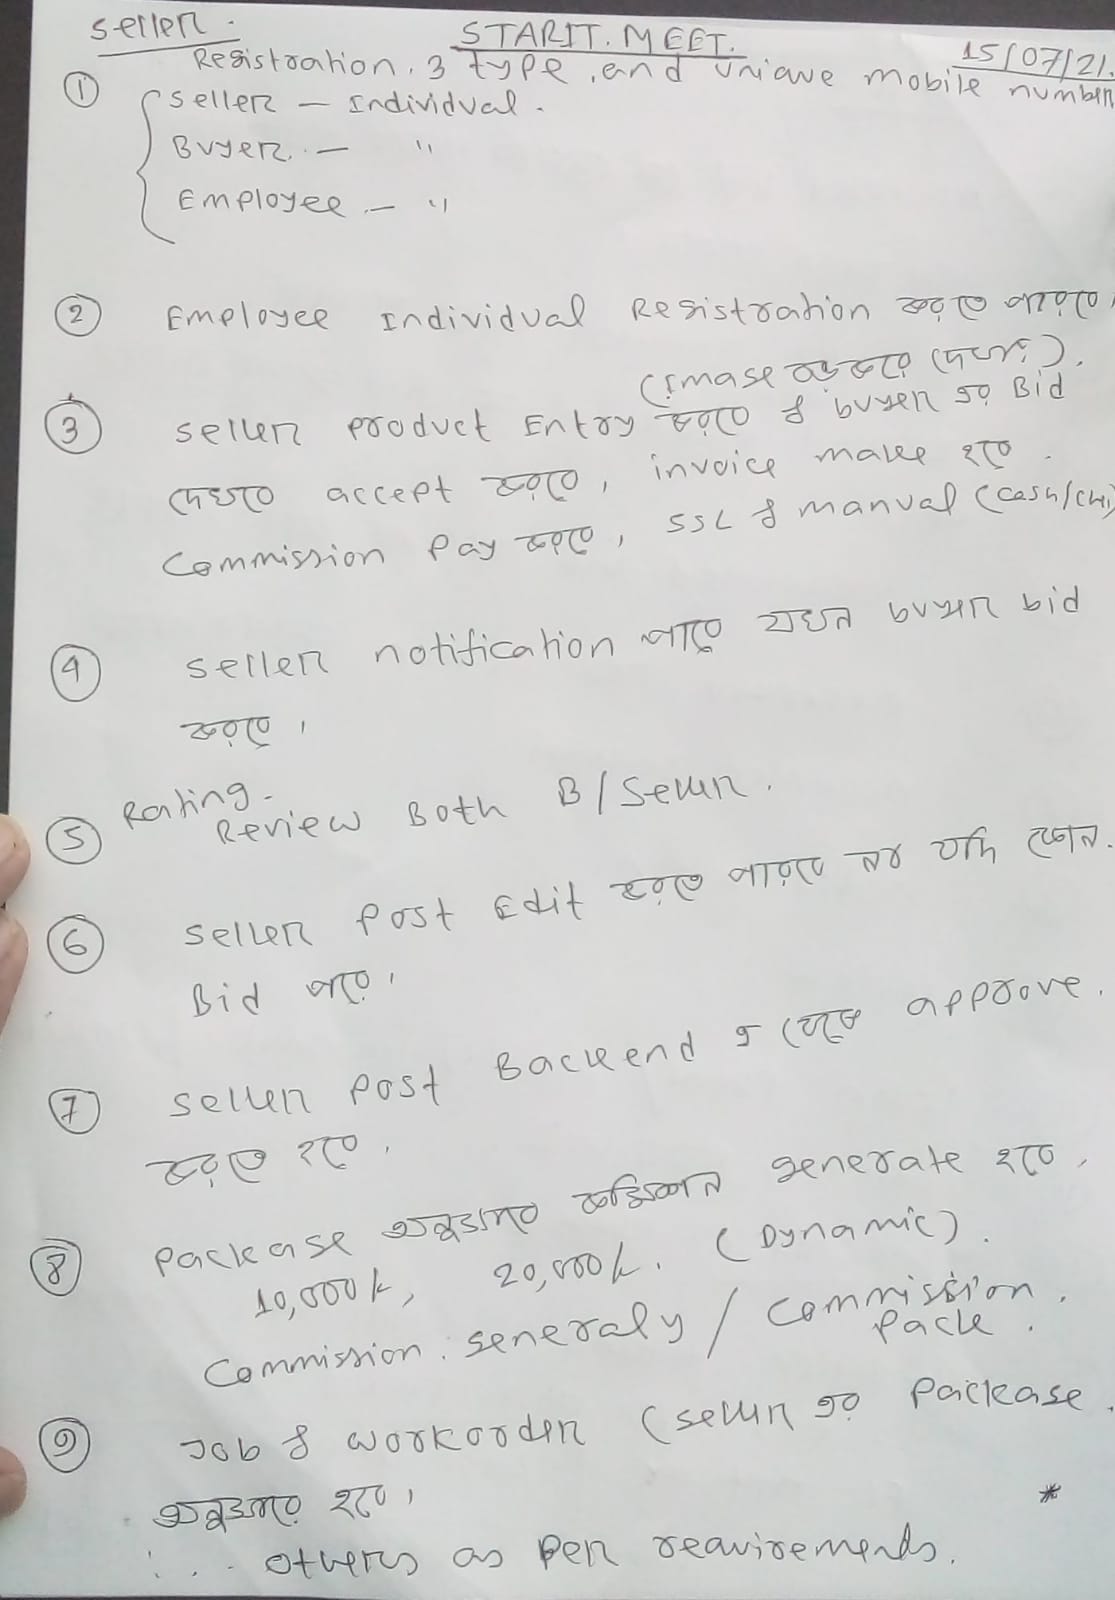 Seller.
STARIT. MEET.
15/07/21.
① Registration. 3 type, and unique mobile number
Seller — Individual.
Buyer. — "
Employee — "
② Employee Individual Registration করতে পারবে।
(image
③ Seller product Entry করবে & buyer এর Bid
দেখে accept করবে, invoice make হবে.
Commission Pay করবে, SSL & manual (cash/
④ Seller notification পাবে যখন buyer bid
করবে।
⑤ Rating. Review Both B/Seller.
⑥ Seller Post Edit করতে পারবে না যদি কোন.
Bid পরে।
⑦ Seller Post Backend এ থেকে approve.
করতে হবে।
⑧ Package অনুসারে কমিশন generate হবে।
10,000k, 20,000k. (Dynamic).
Commission. generaly / Commission. Pack.
⑨ Job & workorder (seller এর Package.
অনুসারে হবে।
*
: . . . others as per requirements.